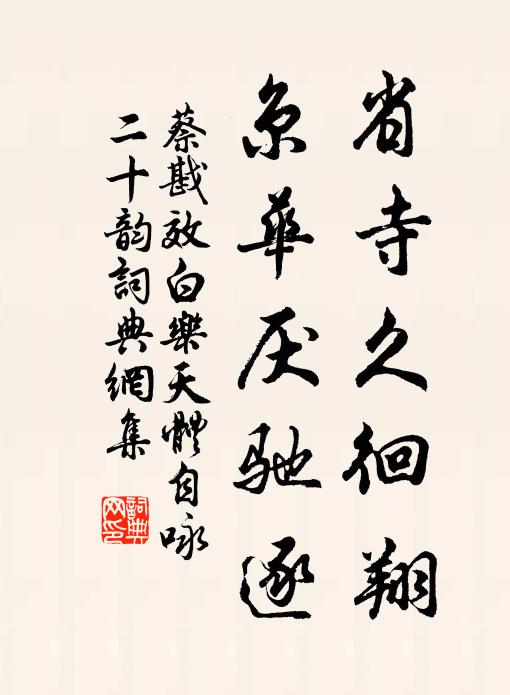 省寺久徊翔
京華厌馳逐
蔡戡效白樂天體自咏
二十韵詞典網集
詞典網印